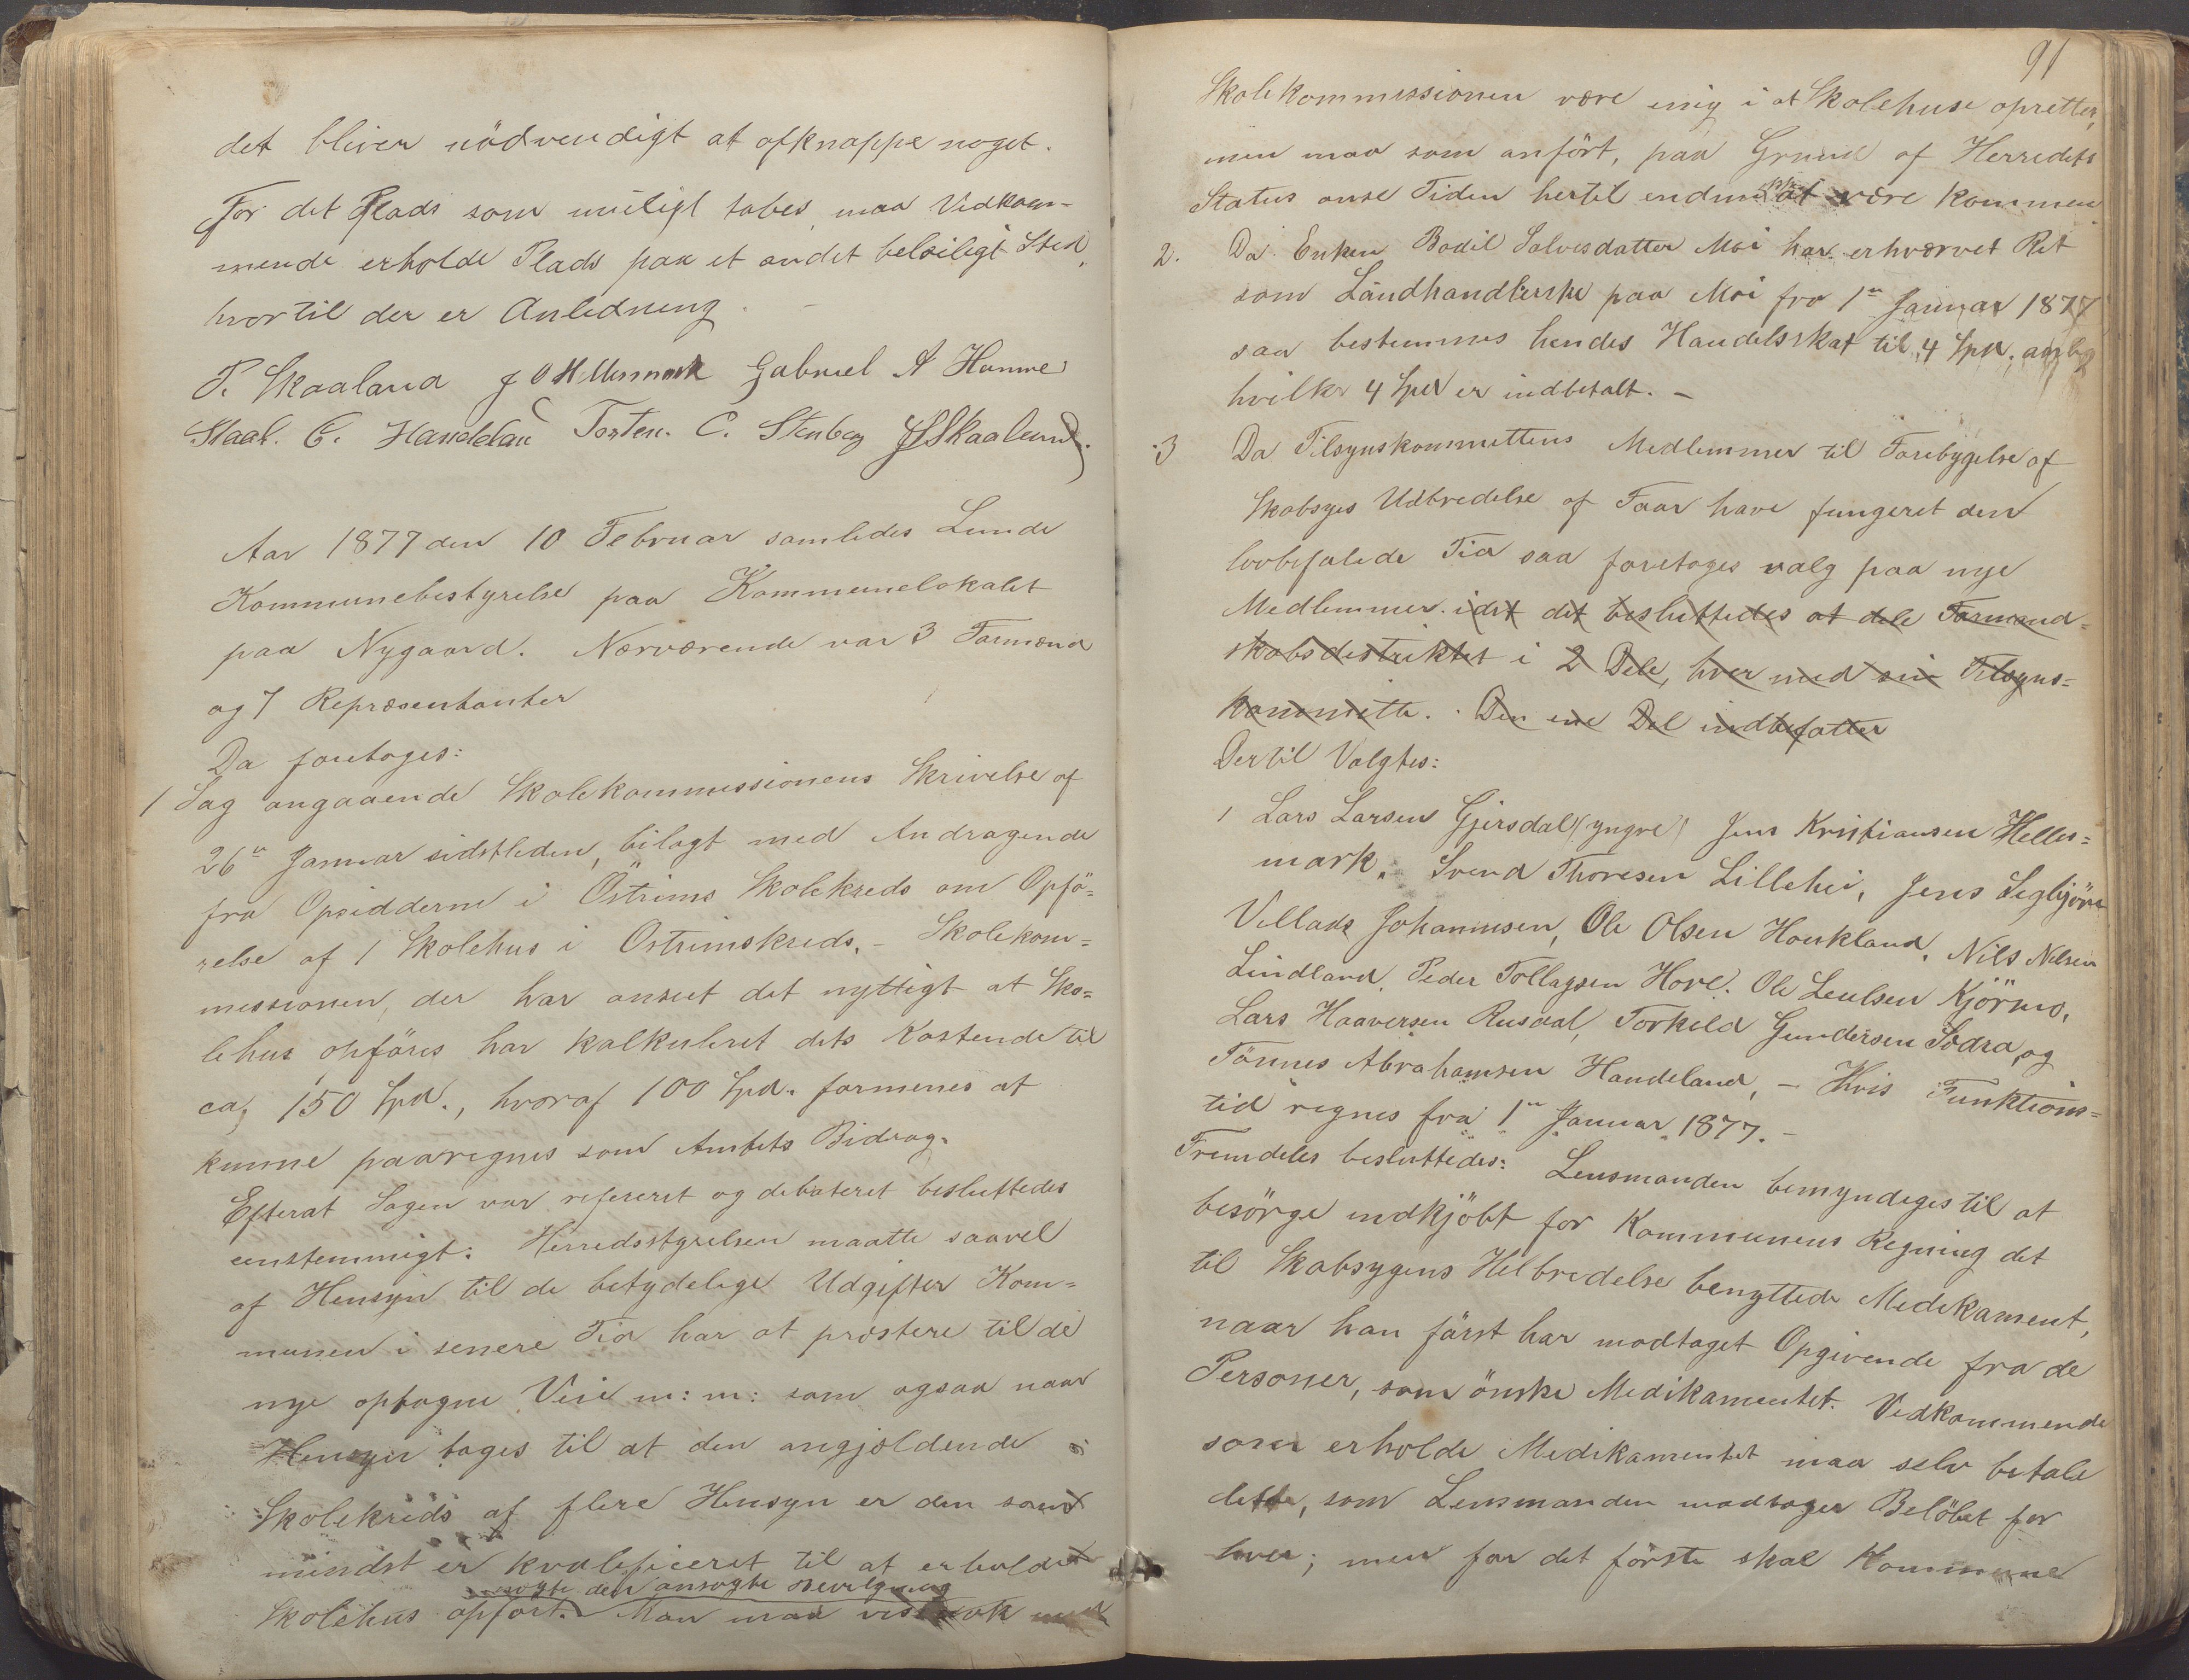 det bliver nödvendigt at afknappe noget.
For det Plads som muligt tabes, maa Vedkom-
mende erholde Plads paa et andet beleiligt Sted,
hvortil der er Anledning. —
P. Skaaland J O Hellesmark Gabriel A Hamre
Staal. C. Handeland Torsten. C. Stenberg Skaaland.
Aar 1877 den 10 Februar samledes Lunde
Kommunebestyrelse paa Kommunelokalet
paa Nygaard. Nærværende var 3 Formænd
og 7 Repræsentanter
Da foretoges:
1 Sag angaaende Skolekommissionens Skrivelse af
26de Januar sidstleden, bilagt med Andragende
fra Opsidderne i Östrims Skolekreds om Opfö-
relse af 1 Skolehus i Östrimskreds. – Skolekom=
missionen, der har anseet det nyttigt at Sko=
lehus opföres har kalkuleret dets Kostende til
ca, 150 Spd., hvoraf 100 Spd. formenes at
kunne paaregnes som Amtets Bidrag.
Efterat Sagen var refereret og debateret besluttedes
eenstemmigt: Herredsstyrelsen maatte saavel
af Hensyn til de betydelige Udgifter Kom=
munen i senere Tid har at præstere til de
nye optagne Veie m: m: som ogsaa naar
Hensyn tages til at den angjældende
Skolekreds af flere Hensyn er den som
mindst er kvalificeret til at erholde
den ansøgte Bevilgning
Skolehus opfört. Man maa vistnok med
91
Skolekommissionen være enig i at Skolehuse opretter,
men maa som anfört, paa Grund af Herredets
Status anse Tiden hertil endnu ikke at være kommen.
2. Da Enken Bodil Salvesdatter Moi har erhværvet Ret
som Landhandlerske paa Moi fra 1ste Januar 1877
saa bestemmes hendes Handelsskat til 4 Spd. aarlig
hvilke 4 Spd er indbetalt. –
3 Da Tilsynskommitteens Medlemmer til Forebygelse af
Skabsyges Udbredelse af Faar have fungeret den
lovbefalede Tid saa foretages valg paa nye
Medlemmer. idet det besluttedes at dele Formand=
skabsdistriktet i 2 Dele, hver med sin Tilsyns=
kommitte. Den ene Del indbefatter
Dertil Valgtes:
1 Lars Larsen Gjersdal (yngre) Jens Kristiansen Helles=
mark. Svend Thoresen Lillehei, Jens Sigbjörn
Villads Johannesen, Ole Olsen Haukland, Nils Nilsen
Lindland. Peder Tollagsen Hove. Ole Leulsen Kjörmo,
Lars Haaversen Rusdal, Torkild Gundersen Sodra, og
Tönnes Abrahamsen Handeland, – Hvis Funktions=
tid regnes fra 1ste Januar 1877. –
Fremdeles besluttedes: Lensmanden bemyndiges til at
besörge indkjöbt for Kommunens Regning det
til Skabsygens Helbredelse benyttede Medikament,
naar han först har modtaget Opgivende fra de
Personer, som önske Medikamentet. Vedkommende
som erholde Medikamentet maa selv betale
dette, som Lensmanden modtager Belöbet for
hver; men for det förste skal Kommune